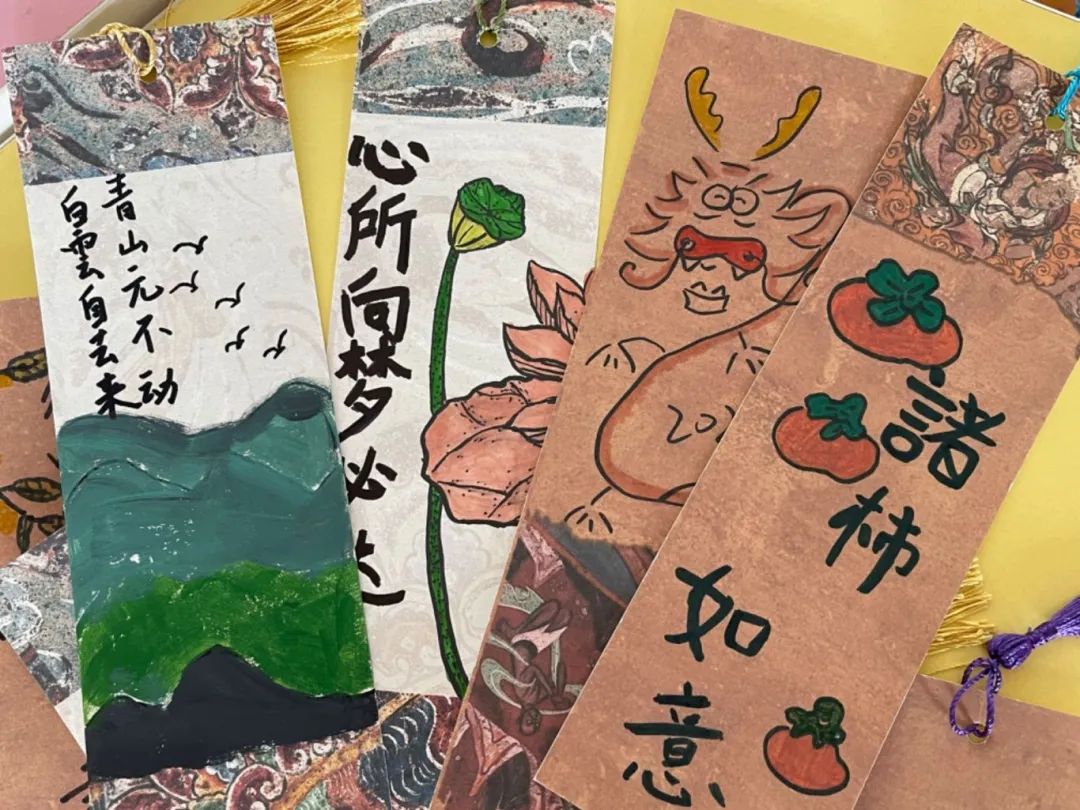 青山元不动
白雲自去来
心所向梦必达
202
諸柿
如意